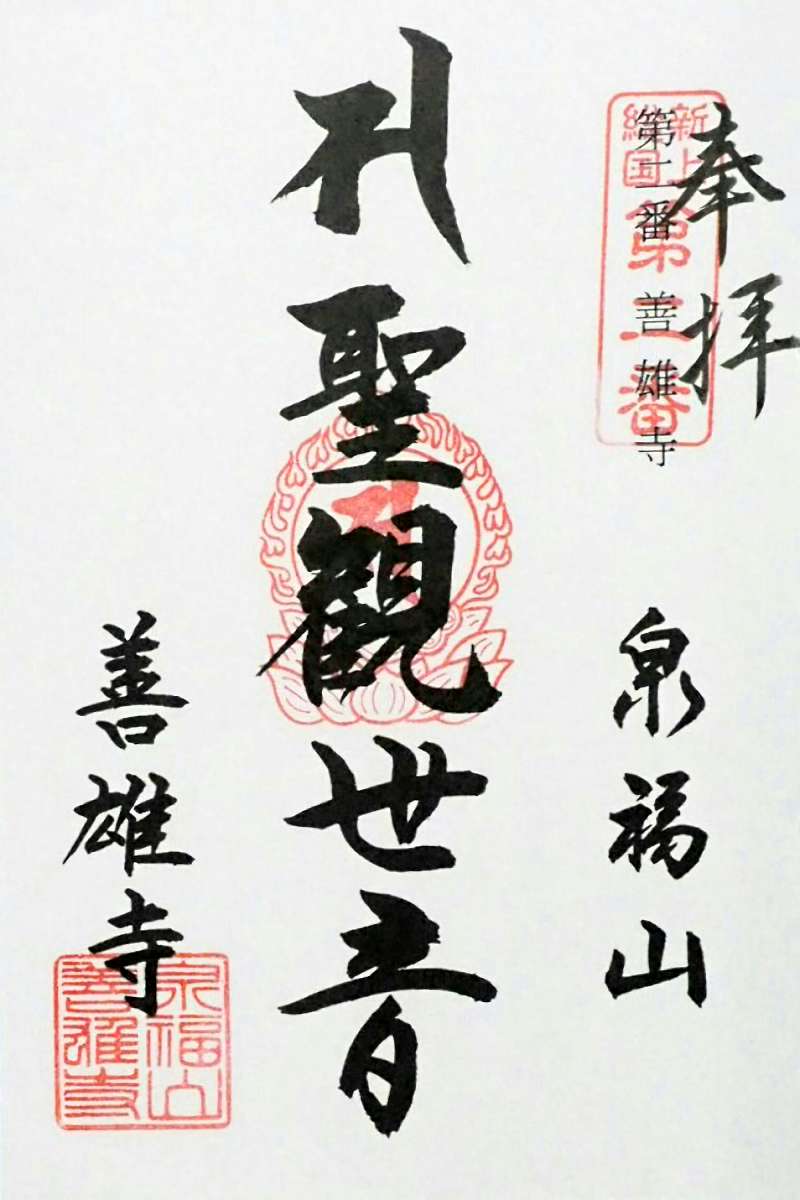 奉拝
新上
総国
第二番
第二番 善雄寺
泉福山
聖観世音
善雄寺
泉福山
善雄寺